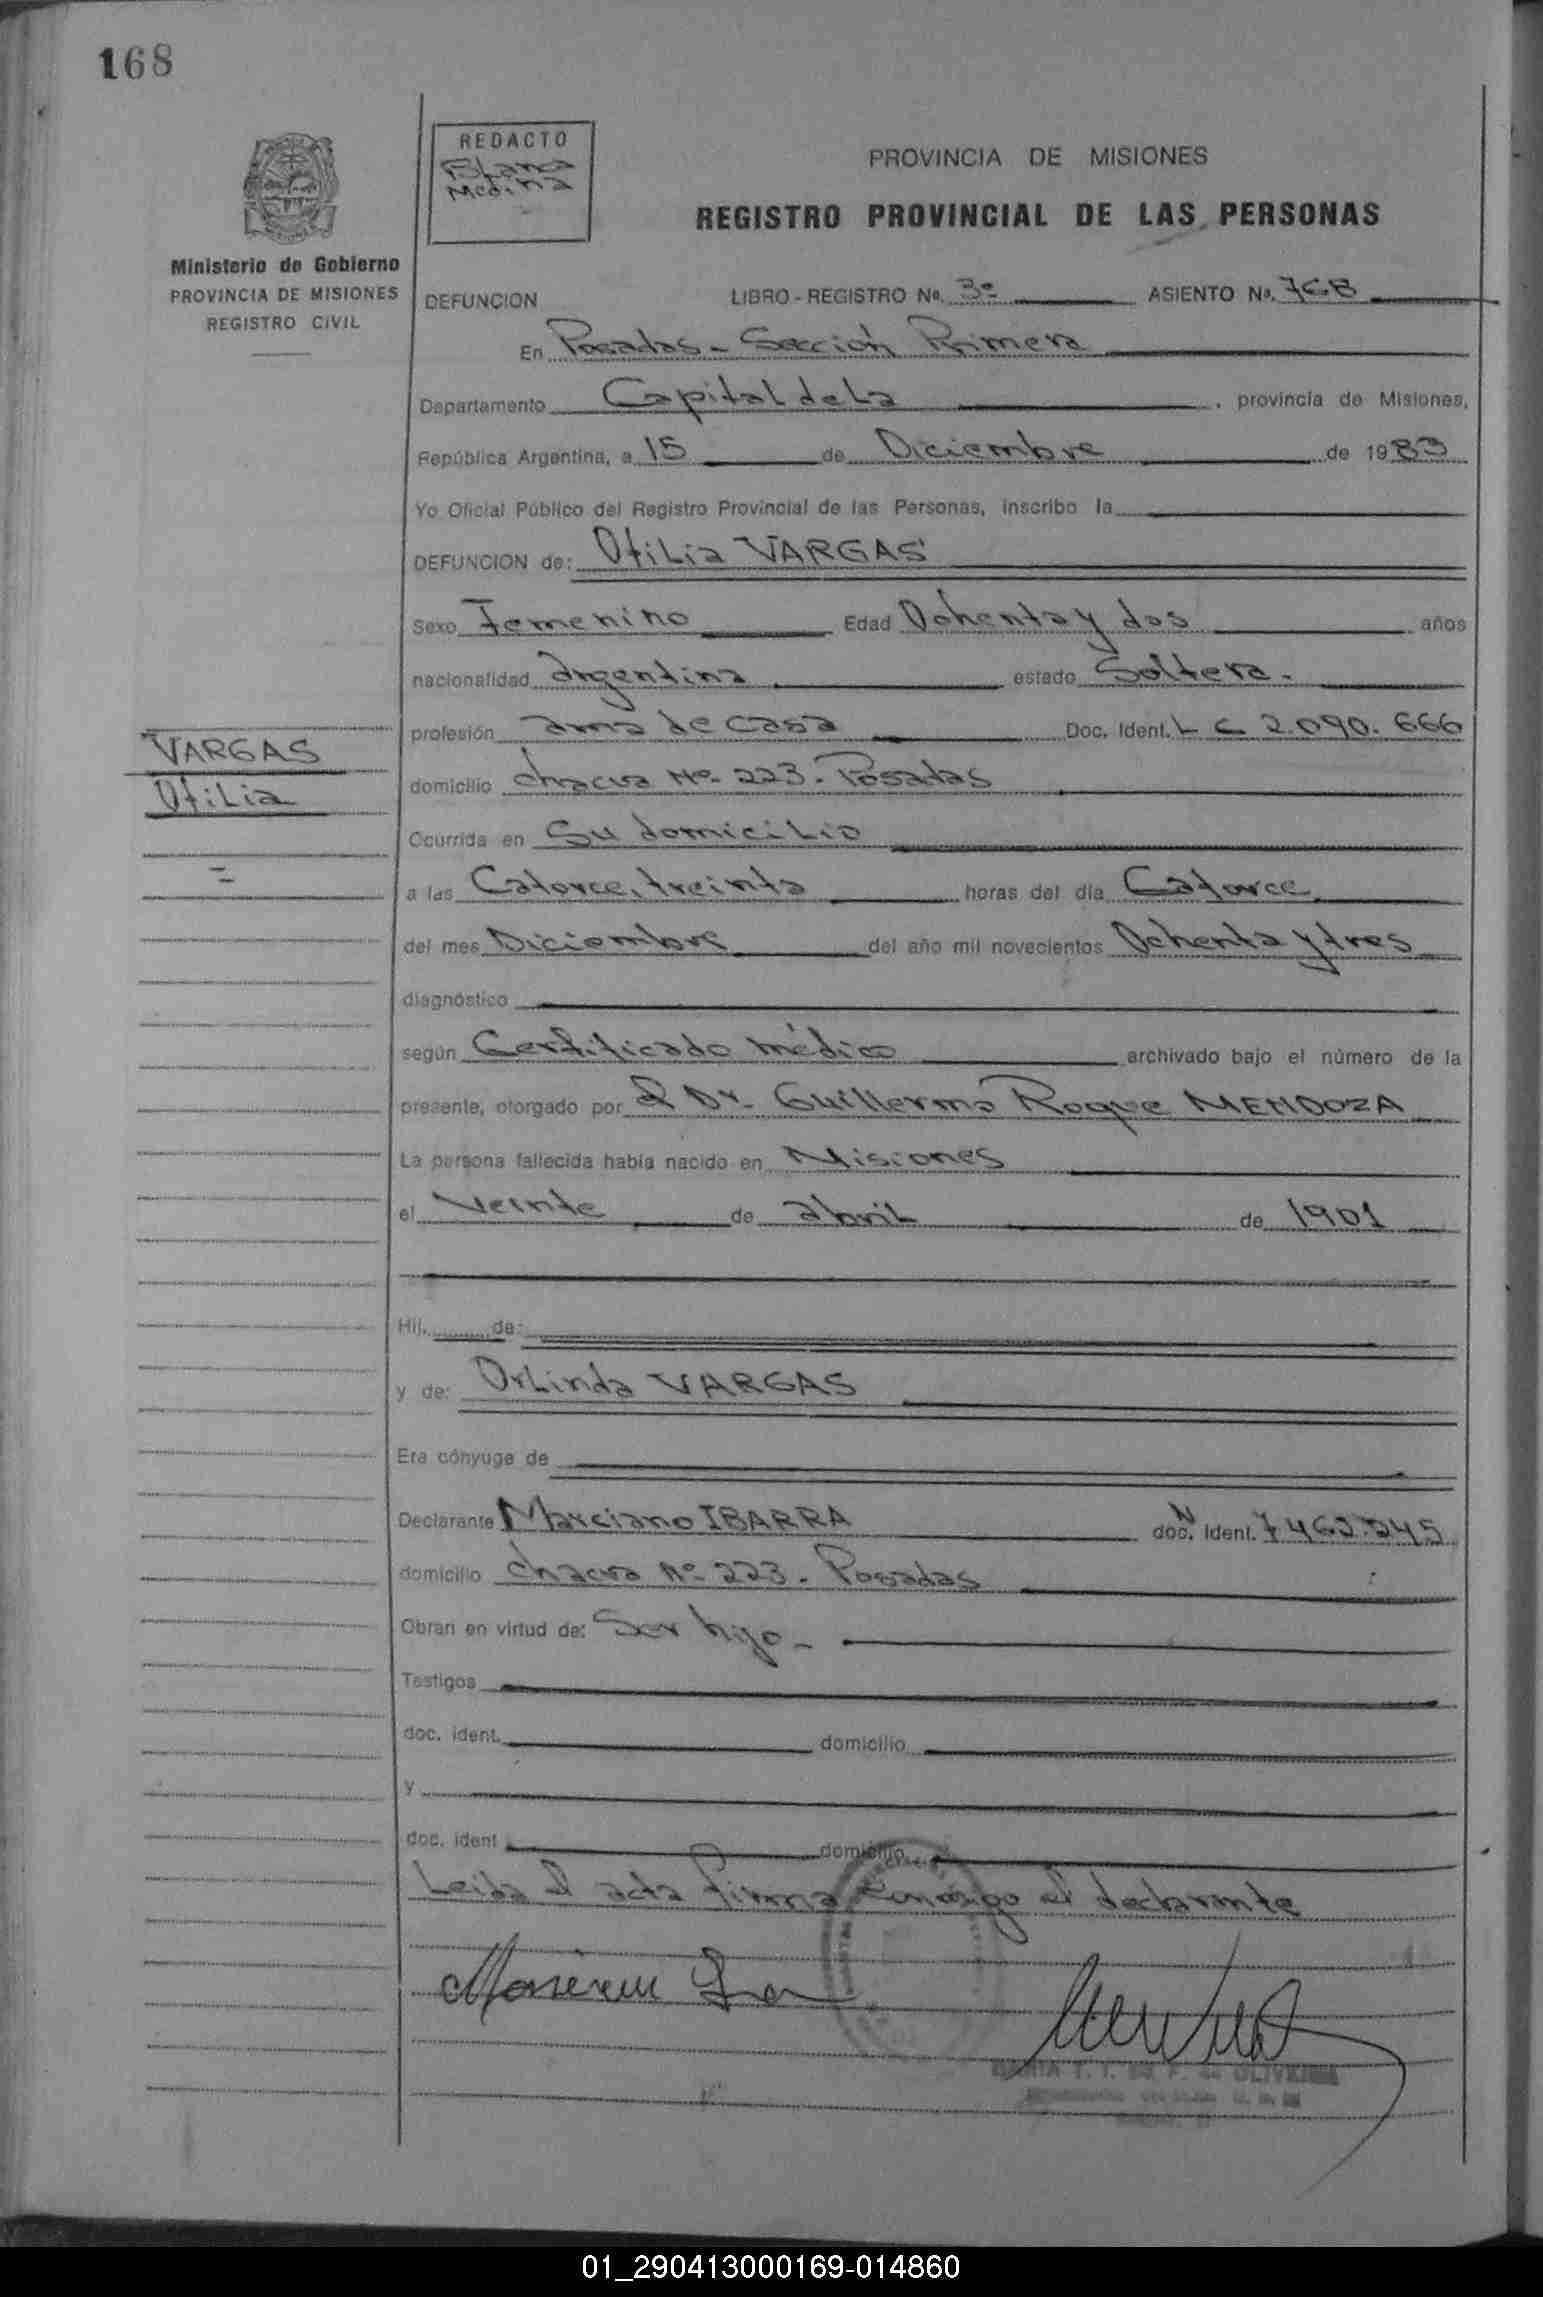 168
REDACTO
Blanca
Medina
PROVINCIA DE MISIONES
REGISTRO PROVINCIAL DE LAS PERSONAS
Ministerio de Gobierno
PROVINCIA DE MISIONES
REGISTRO CIVIL
DEFUNCION LIBRO - REGISTRO No. 3º ASIENTO No. 768
En Posadas - Sección Primera
Departamento Capital de La , provincia de Misiones,
República Argentina, a 15 de Diciembre de 1983
Yo Oficial Público del Registro Provincial de las Personas, inscribo la
DEFUNCION de: Otilia VARGAS
Sexo Femenino Edad Ochenta y dos años
nacionalidad argentina estado Soltera.-
profesión ama de casa Doc. Ident. L C 2.090.666
VARGAS
Otilia
domicilio chacra Nº 223. Posadas
Ocurrida en Su domicilio
a las Catorce, treinta horas del día Catorce
del mes Diciembre del año mil novecientos Ochenta y tres
diagnóstico
según Certificado médico archivado bajo el número de la
presente, otorgado por el Dr. Guillermo Roque MENDOZA
La persona fallecida había nacido en Misiones
el Veinte de abril de 1901
Hij. de:
y de: Orlinda VARGAS
Era cónyuge de
Declarante Marciano IBARRA doc. Ident. N 7.462.245
domicilio chacra Nº 223. Posadas
Obran en virtud de: Ser hijo -
Testigos
doc. ident. domicilio
y
doc. ident domicilio
Leida el acta firma conmigo el declarante
OLIVEIRA
01_290413000169-014860